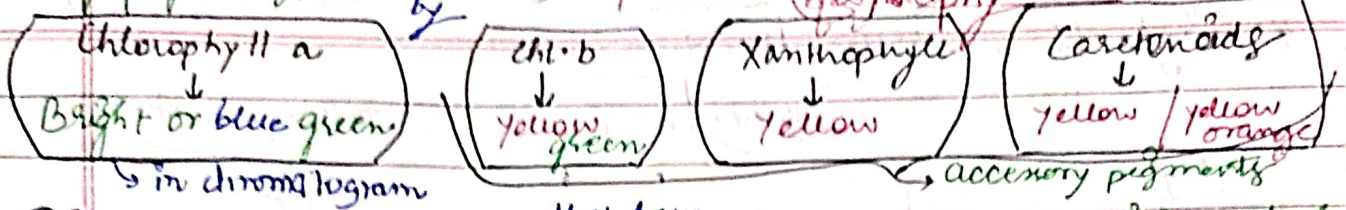 by
Chlorophyll a
↓
Bright or blue green
↳ in chromatogram
Chl.b
↓
yellow
green
Xanthophyll
↓
Yellow
Carotenoids
↓
yellow / yellow
orange
↳ accessory pigments